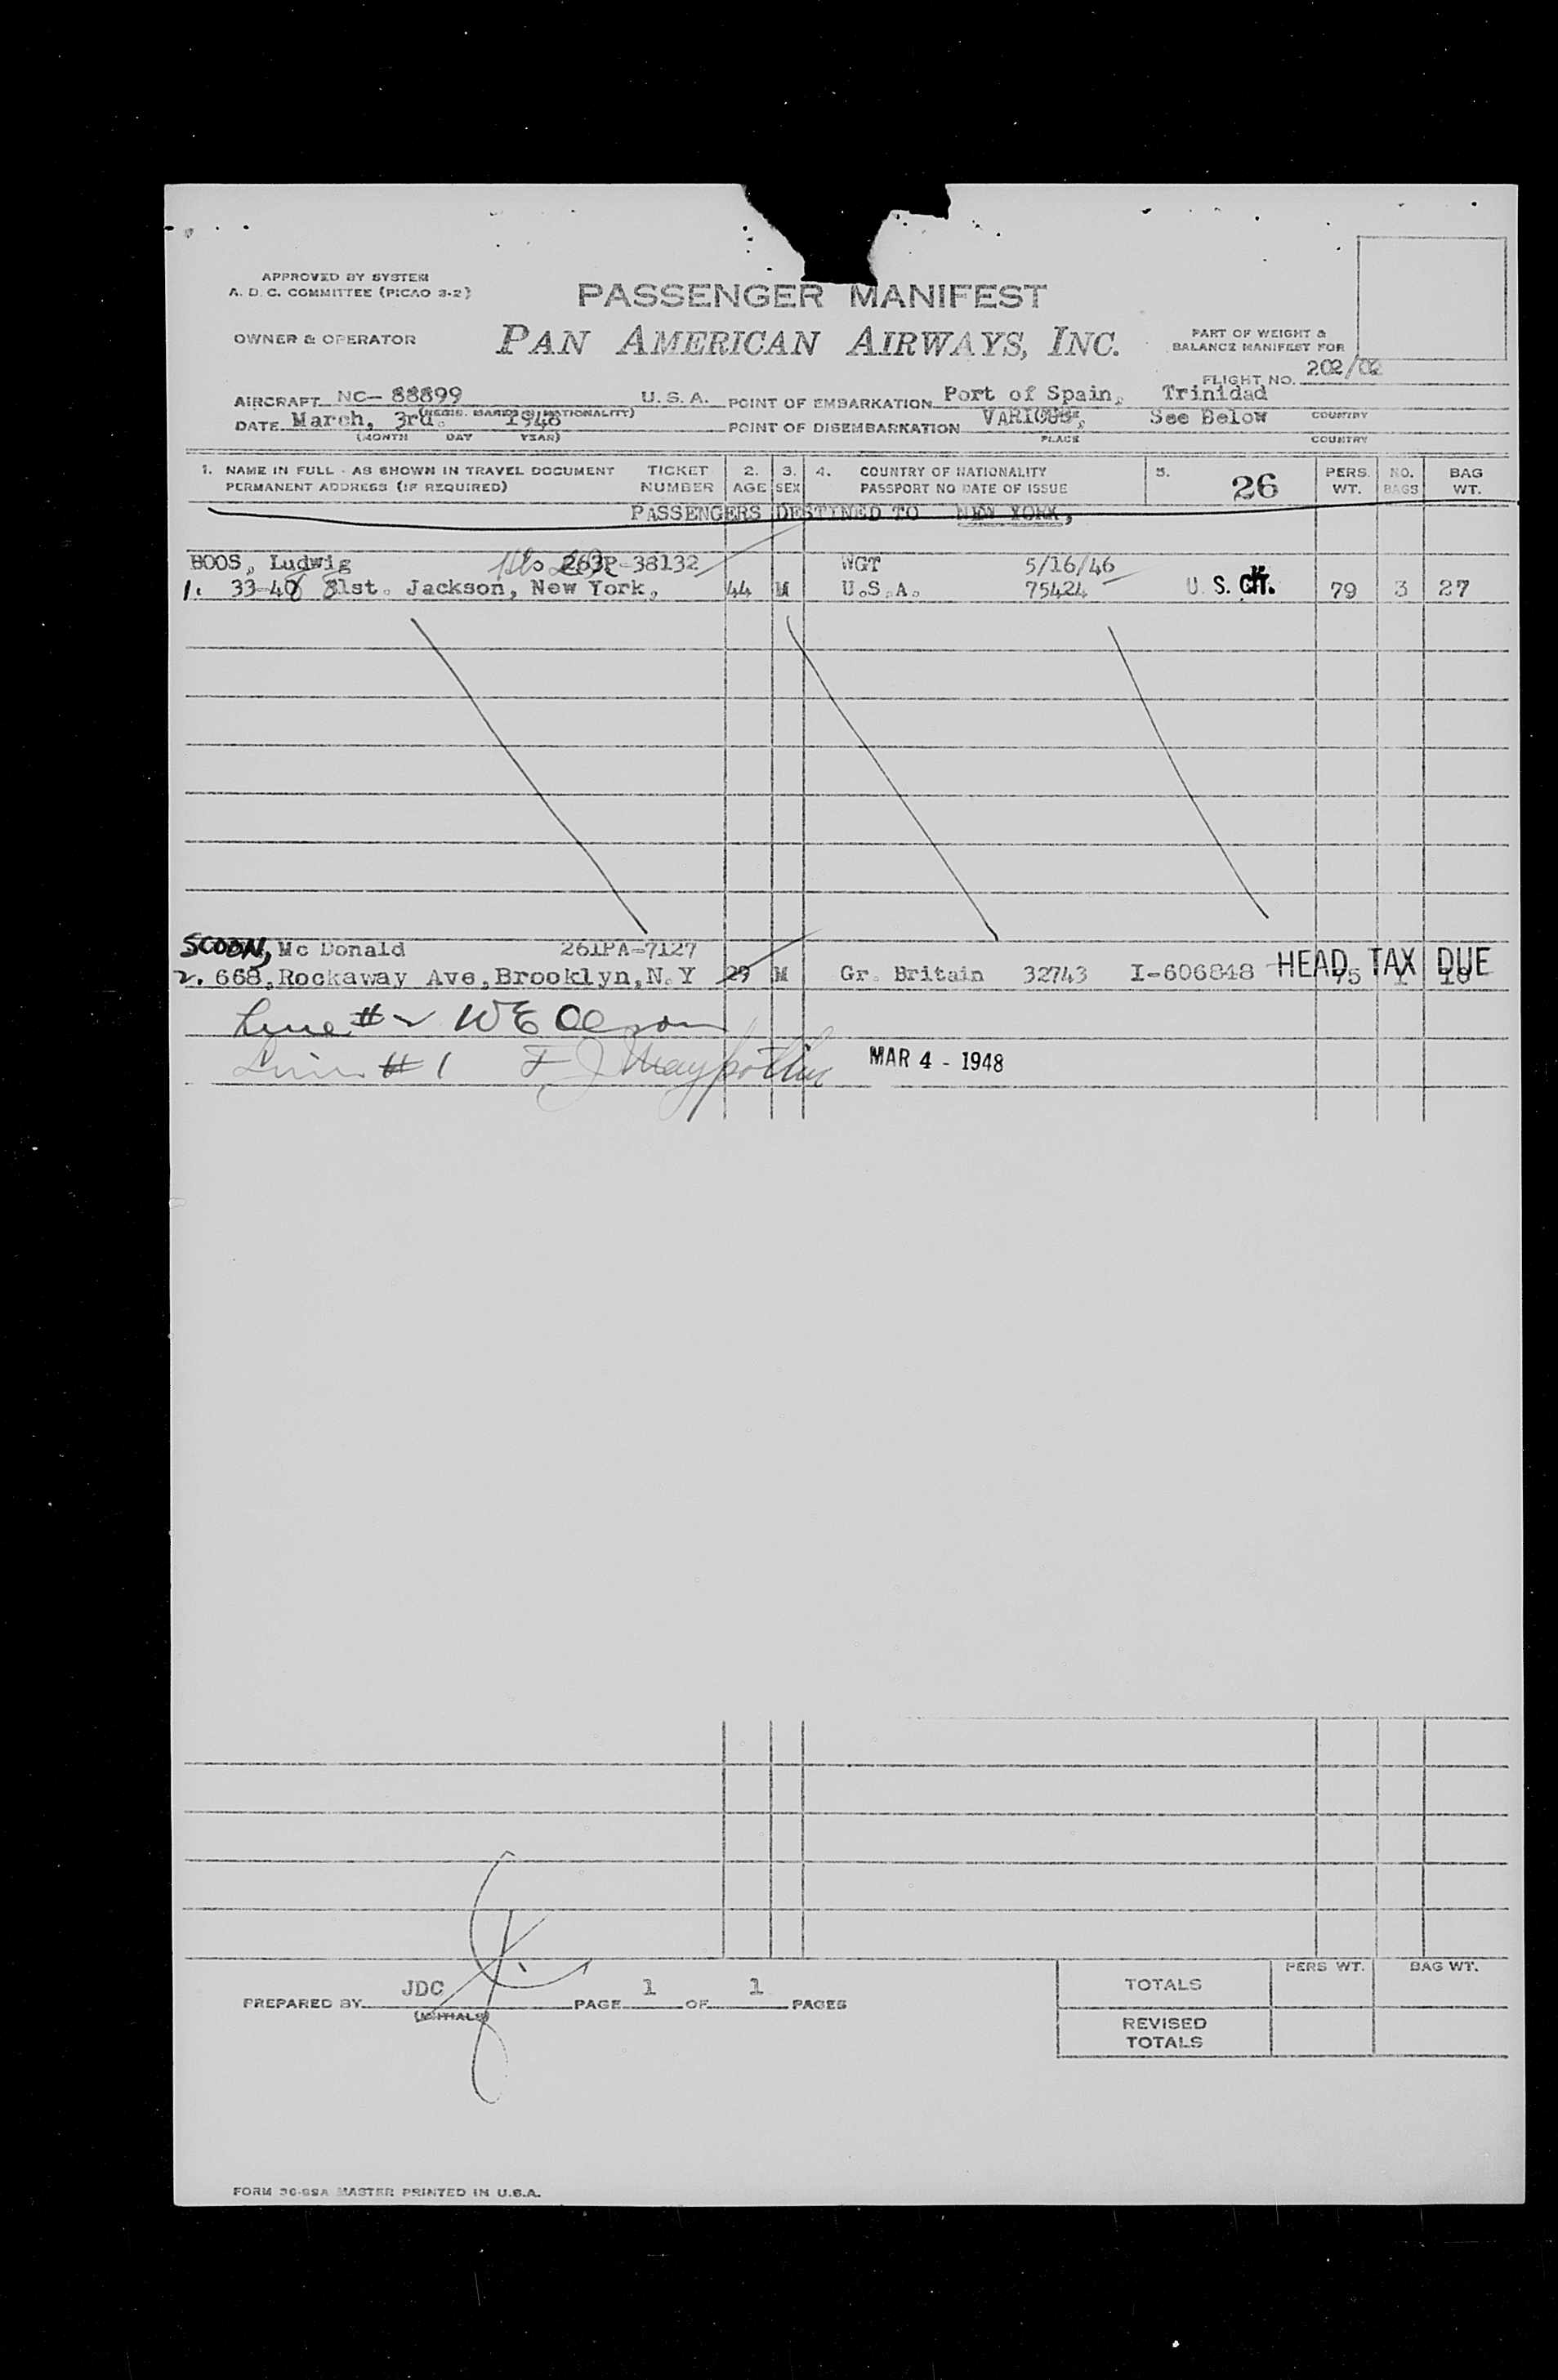 APPROVED BY SYSTEM
A. D. C. COMMITTEE (PICAO 3-2)
PASSENGER MANIFEST
OWNER & OPERATOR
PAN AMERICAN AIRWAYS, INC.
PART OF WEIGHT &
BALANCE MANIFEST FOR
FLIGHT NO. 202/02
AIRCRAFT NC- 88899 U. S. A. POINT OF EMBARKATION Port of Spain, Trinidad
(REGIS. MARKS & NATIONALITY) COUNTRY
DATE March, 3rd. 1948 POINT OF DISEMBARKATION VARIOUS, See Below
(MONTH DAY YEAR) PLACE COUNTRY
1. NAME IN FULL - AS SHOWN IN TRAVEL DOCUMENT TICKET 2. 3. 4. COUNTRY OF NATIONALITY 5. 26 PERS. NO. BAG
PERMANENT ADDRESS (IF REQUIRED) NUMBER AGE SEX PASSPORT NO DATE OF ISSUE WT. BAGS WT.
PASSENGERS DESTINED TO NEW YORK,
BOOS, Ludwig 263P-38132 WGT 5/16/46
1. 33-40 81st. Jackson, New York, 44 M U.S.A. 75424 U. S. CIT. 79 3 27
SCOON, Mc Donald 261PA-7127
2. 668, Rockaway Ave, Brooklyn, N.Y 29 M Gr. Britain 32743 I-606848 HEAD TAX DUE 75 1 10
Line #2 W E Olson
Line #1 F J MAR 4 - 1948
JDC
PREPARED BY (INITIALS) PAGE 1 OF 1 PAGES
PERS WT. BAG WT.
TOTALS
REVISED
TOTALS
FORM 36-99A MASTER PRINTED IN U.S.A.